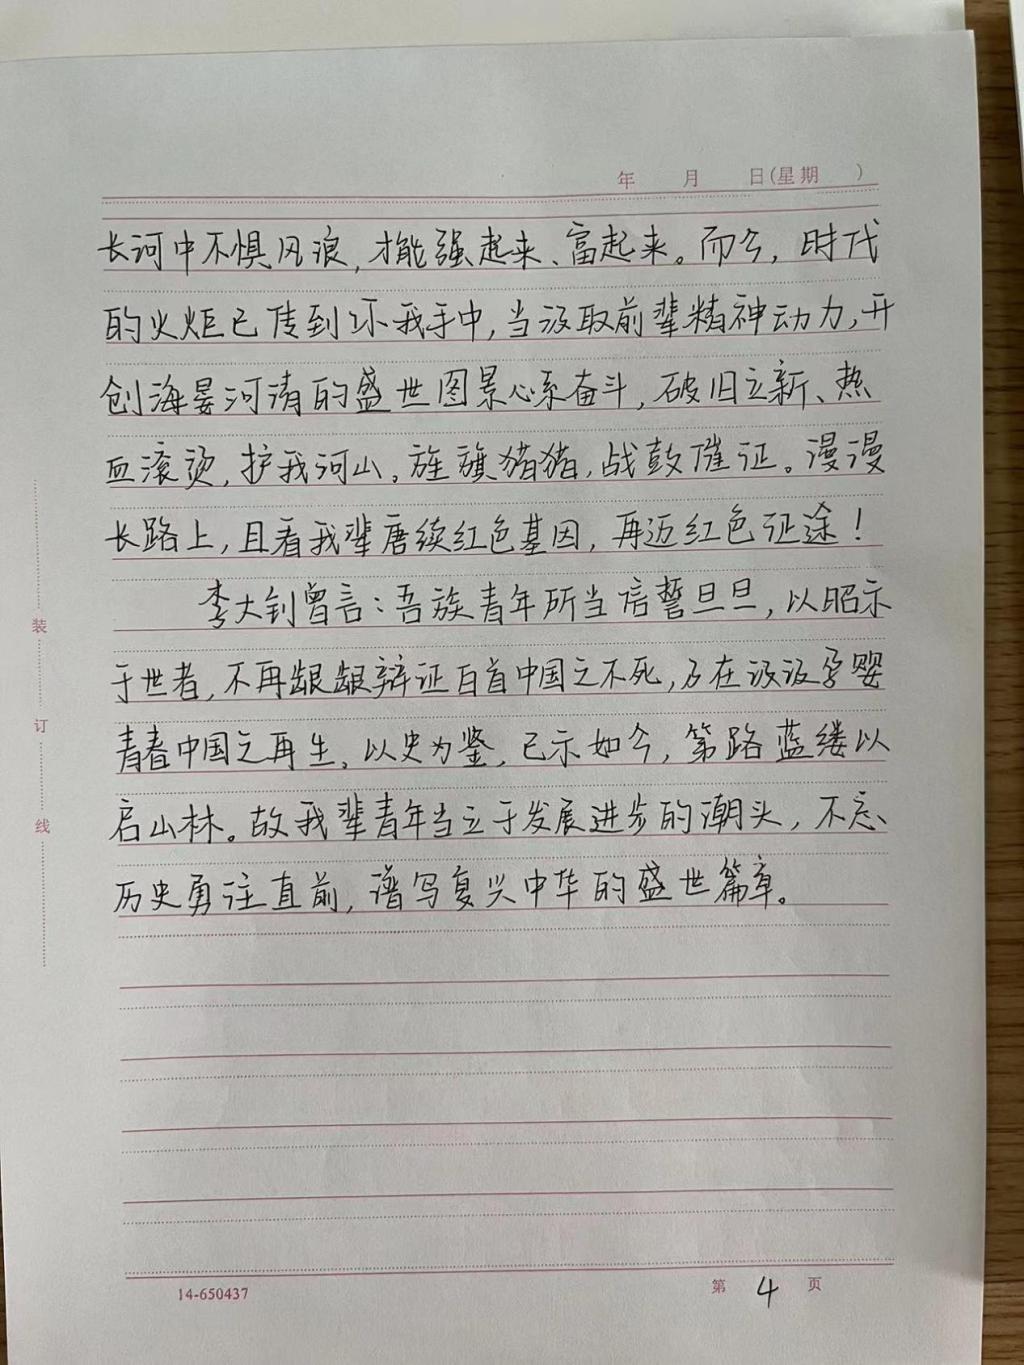 年 月 日(星期 )
长河中不惧风浪,才能强起来、富起来。而今,时代
的火炬已传到你我手中,当汲取前辈精神动力,开
创海晏河清的盛世图景心系奋斗,破旧立新、热
血滚烫,护我河山。旌旗猎猎,战鼓催征。漫漫
长路上,且看我辈赓续红色基因,再迈红色征途!
李大钊曾言:吾族青年所当信誓旦旦,以昭示
于世者,不再龈龈辩证白首中国之不死,乃在汲汲孕婴
青春中国之再生。以史为鉴,已示如今,筚路蓝缕以
启山林。故我辈青年当立于发展进步的潮头,不忘
历史勇往直前,谱写复兴中华的盛世篇章。
装
订
线
14-650437
第 4 页